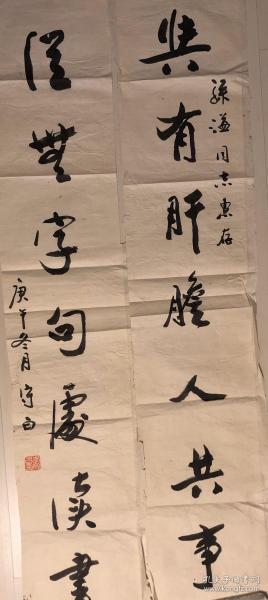 與有肝膽人共事
孫謐同志惠存
從無字句處讀書
庚午冬月 守白
孔夫子旧书网